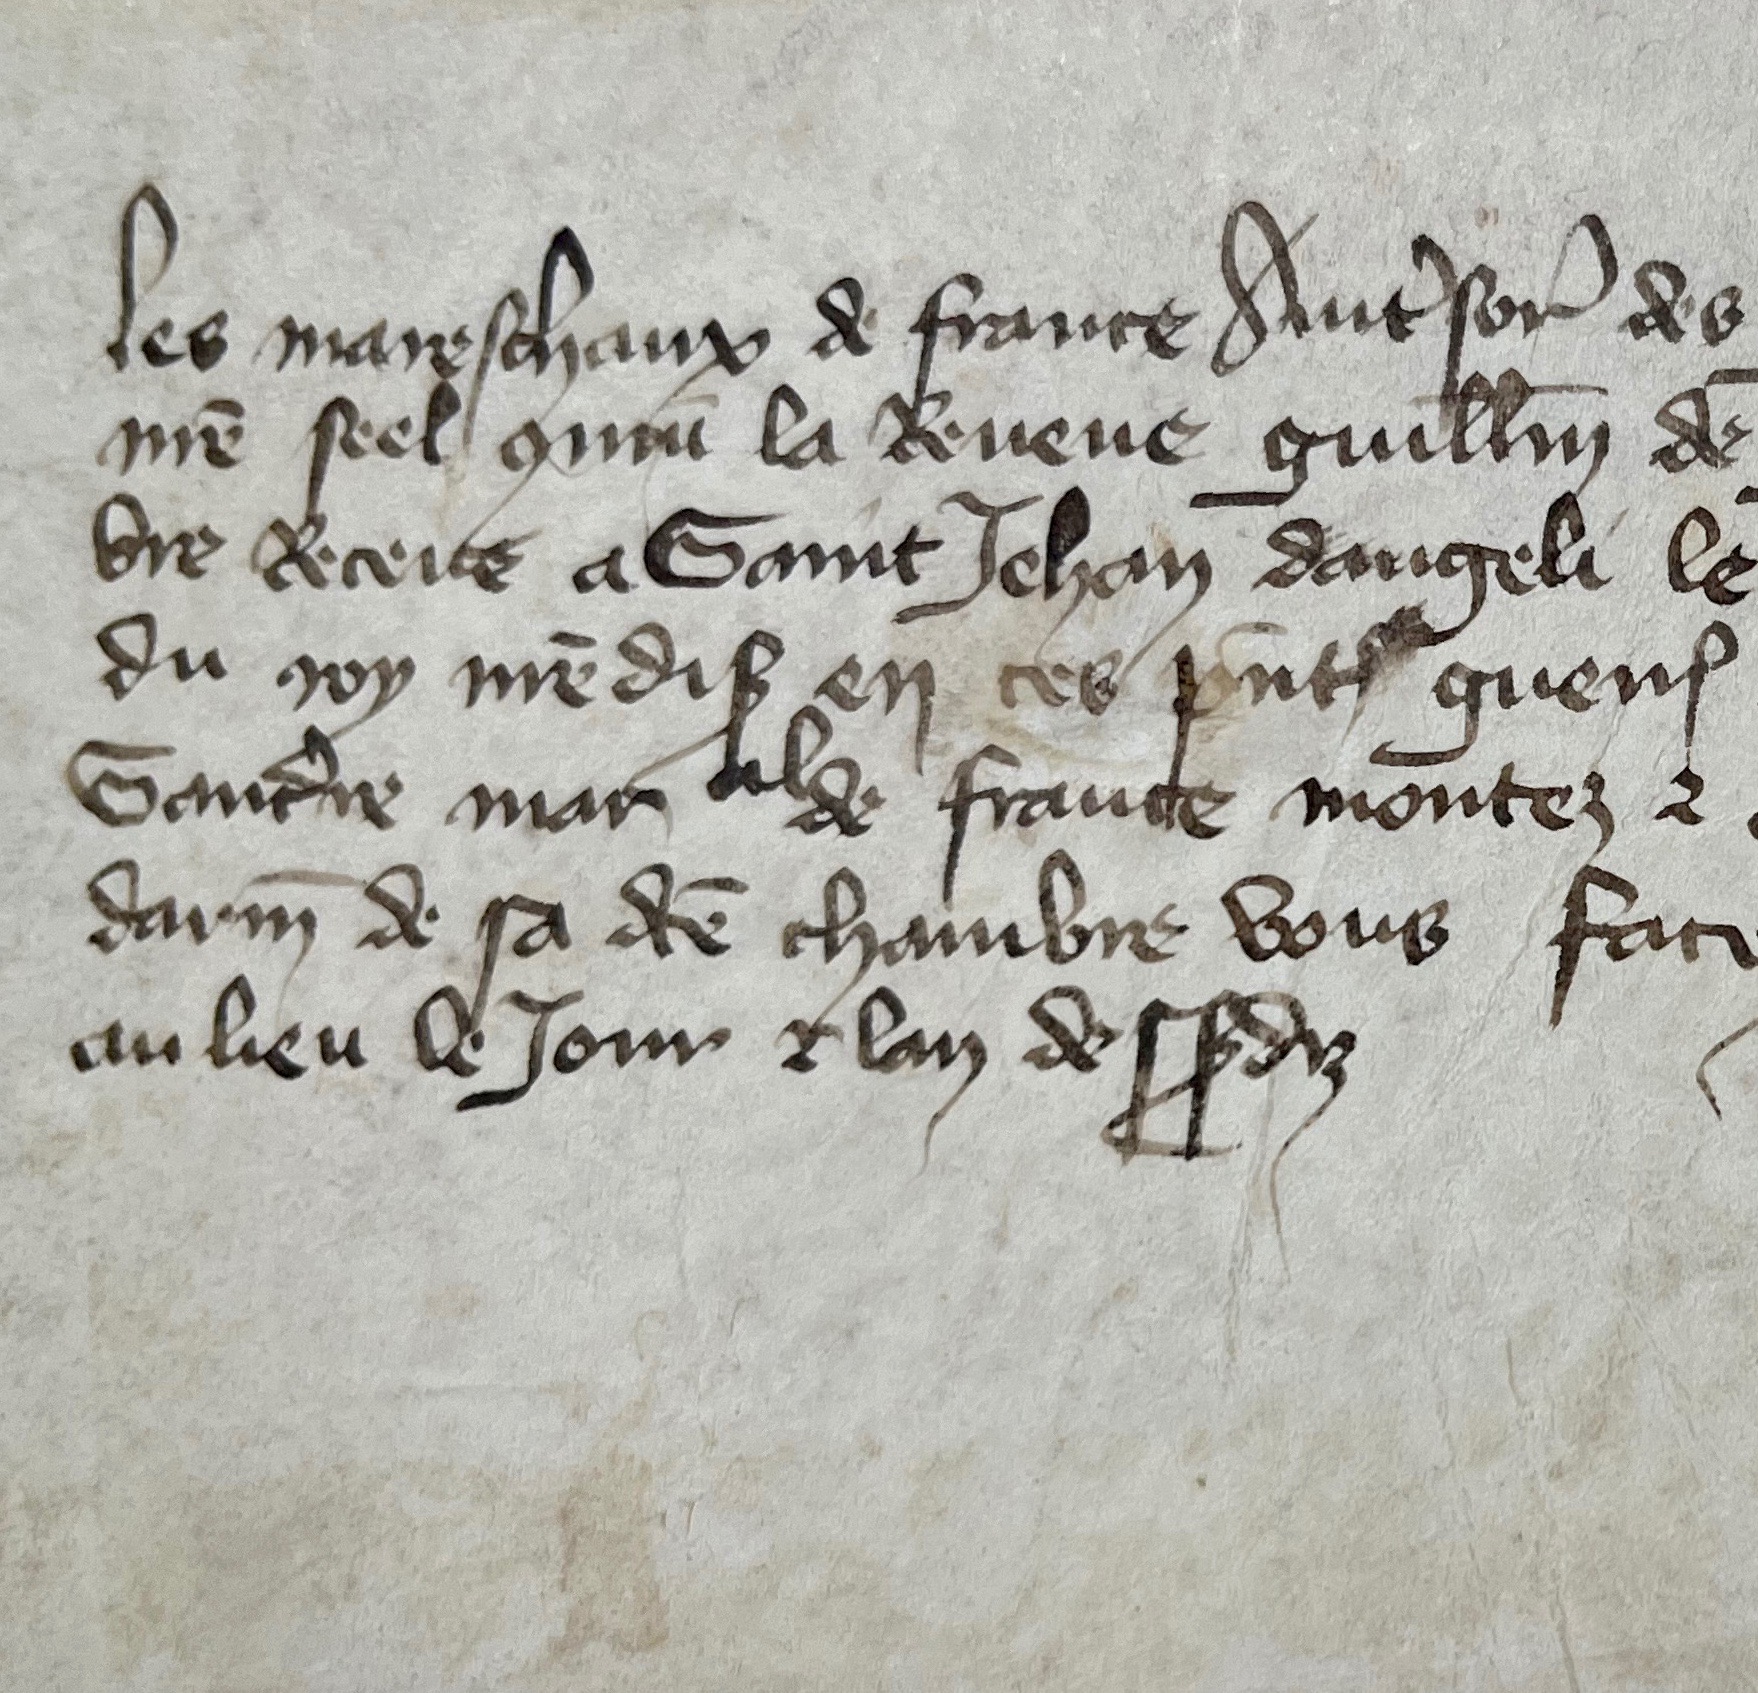 les mareschaux de france Aut sor des
nre seel la Reveue guillm de
bre Receue a Saint Jehan dangeli le
du roy nre dis en ces pnts guens
Sancerre mar de france montez &
darm de sa dce chambre vous
au lieu le Jour & lan de